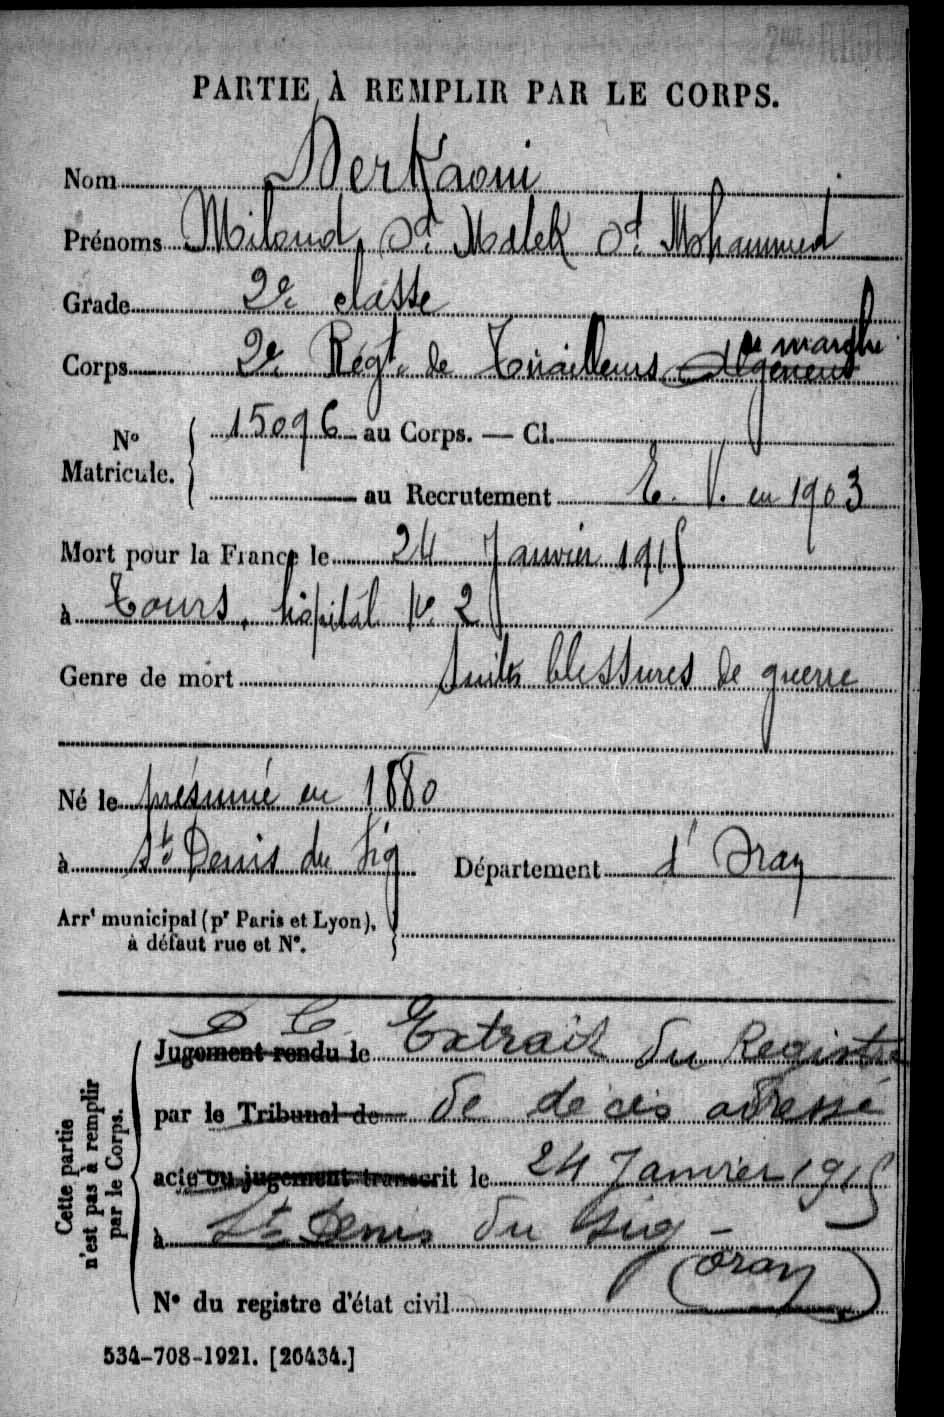 PARTIE À REMPLIR PAR LE CORPS.
Nom Derkaoui
Prénoms Miloud, Od. Malek Od. Mohammed
Grade 2e classe
Corps 2e Régt. de Tirailleurs Algériens de marche
No Matricule. 15096 au Corps. — Cl.
au Recrutement E. V. en 1903
Mort pour la France le 24 Janvier 1915
à Tours, hôpital No. 2
Genre de mort Suites blessures de guerre
Né le présumé en 1880
à St Denis du Sig Département d'Oran
Arrt municipal (pr Paris et Lyon),
à défaut rue et No.
Cette partie n'est pas à remplir par le Corps.
Jugement rendu le Extrait du Registre
par le Tribunal de de décès adressé
acte ou jugement transcrit le 24 Janvier 1915
à St Denis du Sig -
(Oran)
No du registre d'état civil
534-708-1921. [26434.]